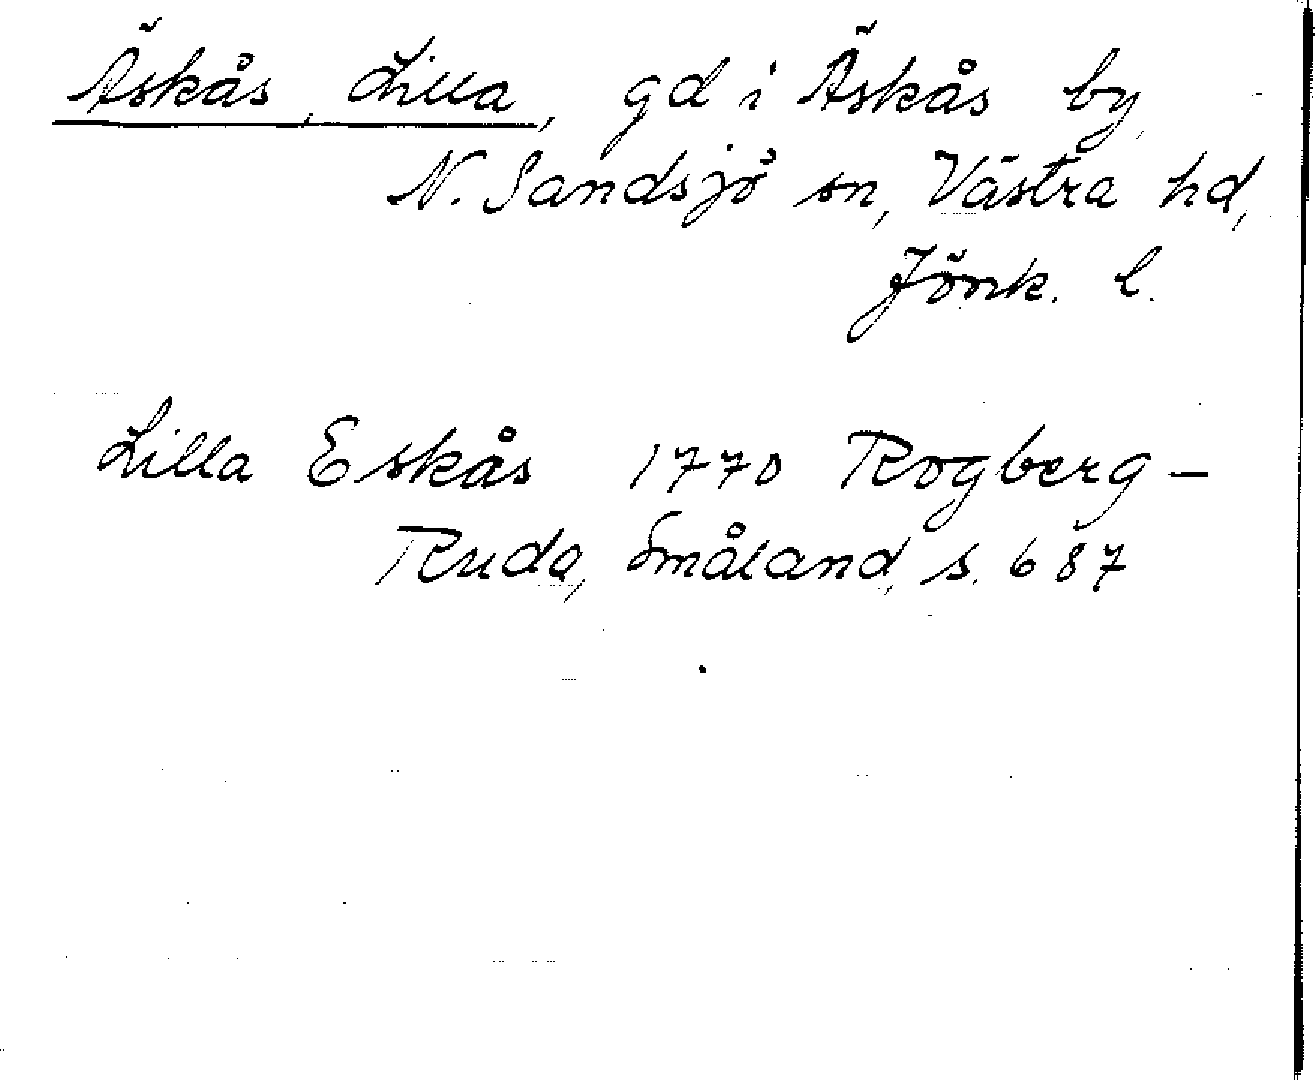 Äskås, Lilla, gd i Äskås by,
N. Sandsjö sn, Västra hd,
Jönk. l.
Lilla Eskås 1770 Rogberg-
Ruda, Småland, s. 687